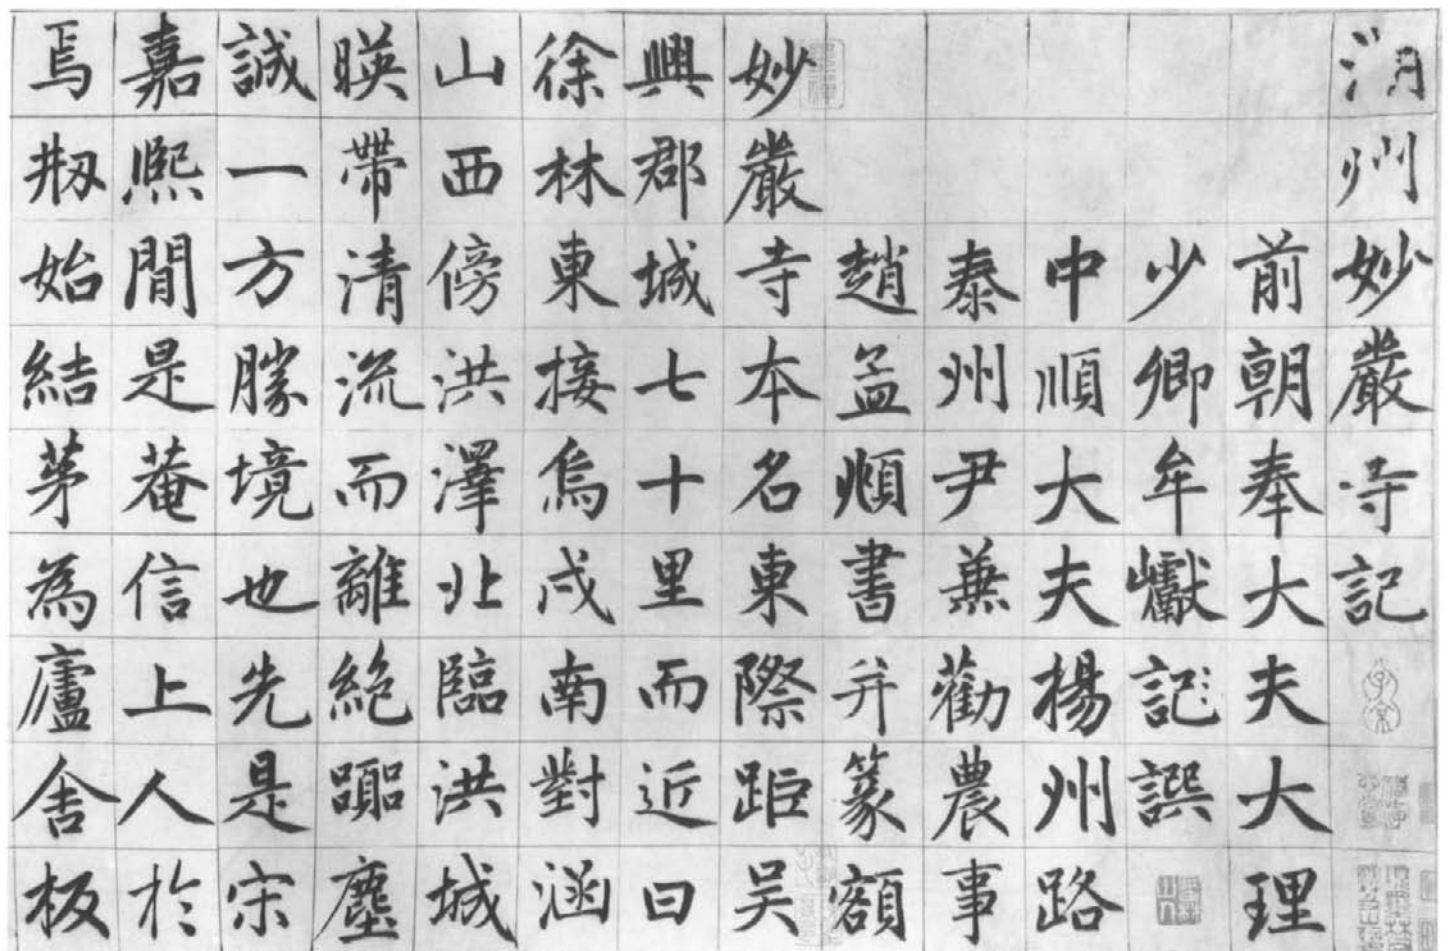 湖州妙嚴寺記
前朝奉大夫大理
少卿牟巘記譔
中順大夫揚州路
泰州尹兼勸農事
趙孟頫書并篆額
妙嚴寺本名東際距吳
興郡城七十里而近曰
徐林東接烏戍南對涵
山西傍洪澤北臨洪城
暎帶清流而離絶躢塵
誠一方勝境也先是宋
嘉熙間是菴信上人於
焉剏始結茅為廬舍板